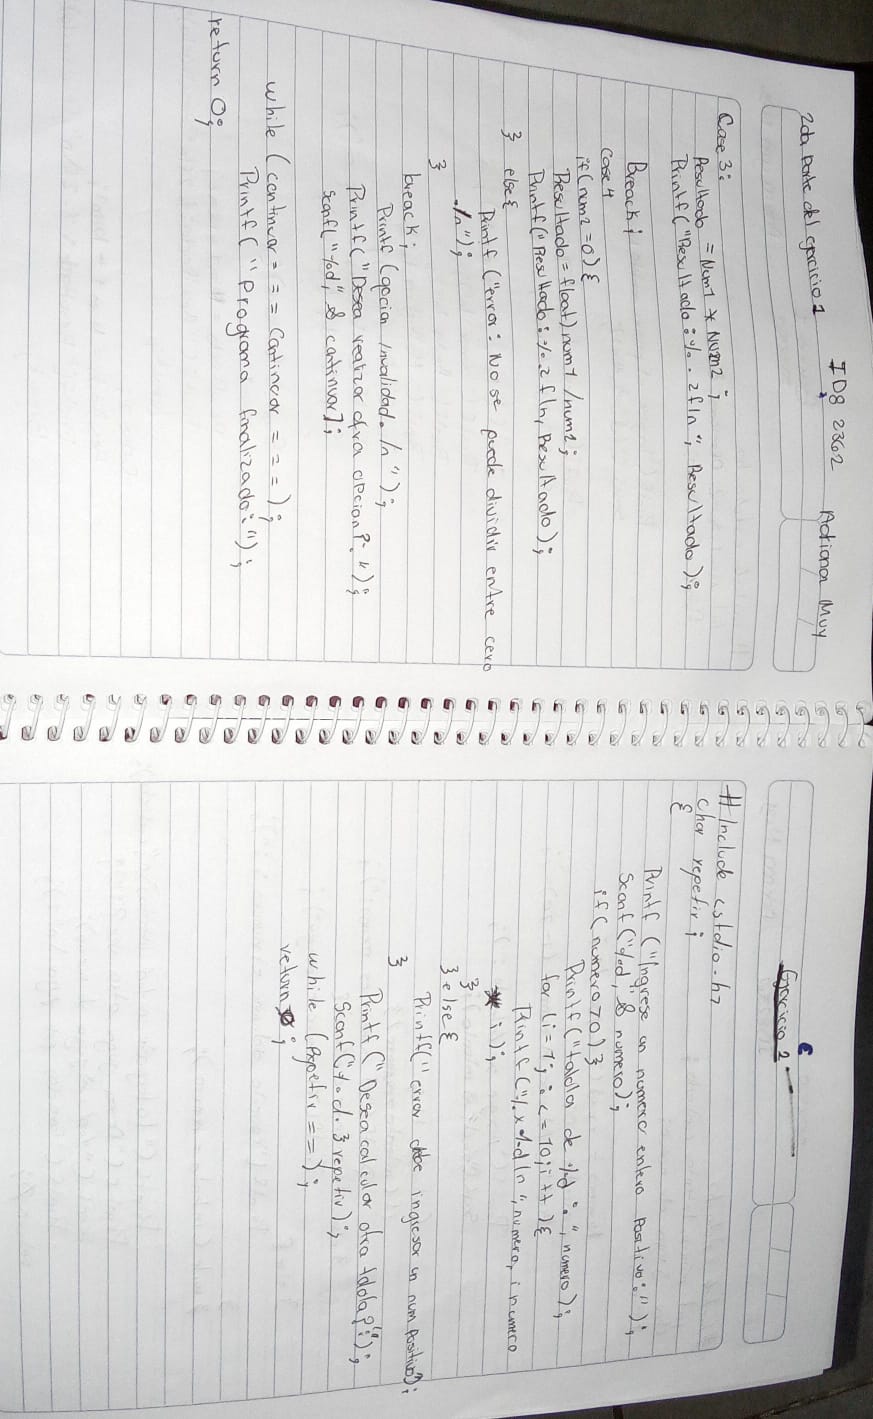 2da parte del ejercicio 1 ID8 2362 Adriana Muy
Case 3:
Resultado = Num1 * Num2;
Printf("Resultado: %. 2f\n", Resultado);
Breack;
Case 4
if (num2 = 0) {
Resultado = float) num1 / num2;
Printf("Resultado: %. 2f \n, Resultado);
} else {
Printf ("error: No se puede dividir entre cero
. \n");
}
breack;
Printf (opcion invalidad. \n");
Printf ("Desea realizar otra opcion?: ");
Scanf("%d", & continuar);
while (continuar = == Continuar = = =);
Printf ("Programa finalizado: ");
return 0;
Ejercicio 2.
# Include <stdio.h>
char repetir;
{
Printf ("Ingrese un numero entero Positivo: ");
Scanf ("%d", & numero);
if (numero > 0) }
Printf ("tabla de %d : ", numero);
for (i = 1; i <= 10; i++) {
Printf ("% x %d \n", numero, i numero
* i);
}
} else {
Printf (" error debe ingresar un num positivo");
}
Printf ("Desea calcular otra tabla?:");
Scanf ("%d. 3 repetir);
while (Repetir == );
return 0;